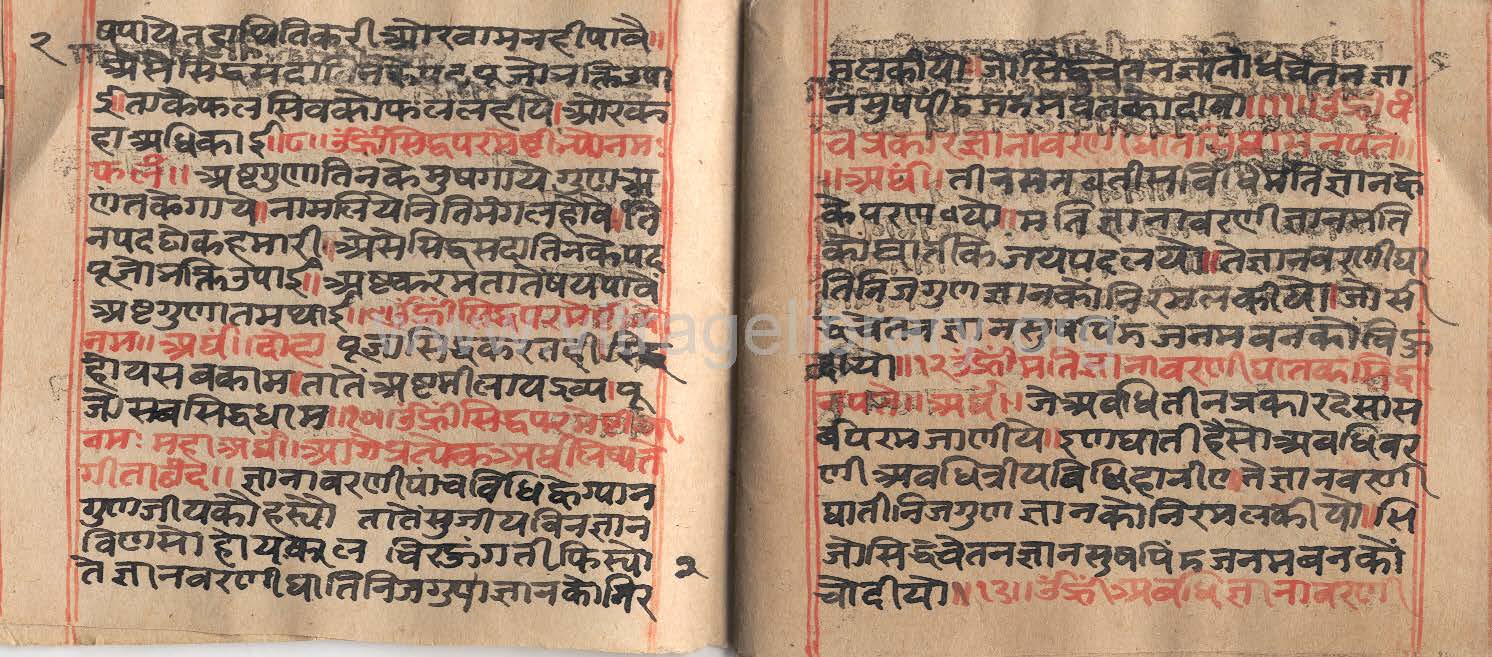 २
षपायेतहाथितिकरी ओरवामनहीपावै॥
असैसिद्धसदातिनकेपदपूजोभक्तिउपा
ई॥ताकैफलसिवकोफललहीये।ओरक
हाअधिकाई॥८॥उंह्रींसिद्धपरमेष्टीभ्योनमः
फलं॥ अष्टगुणतिनकेमुषगाये गुण
णंतकगाय॥नामलियनितिमंगलहोवै॥ति
नपदढोकहमारी।असैसिद्धसदातिनकेपद
पूजोभक्तिउपाई॥अष्टकरमतातेंषयपावें
अष्टगुणातमथाई॥९॥उंह्रींसिद्धपरमेष्टी
नमः॥अर्घं॥दोहा पूजासिद्धकरतही
होयसबकाम।तातेंअष्टमीलायद्रव्य।पू
जौसबसिद्धधाम॥१०॥उंह्रींसिद्धपरमेष्टी
नमः महाअर्घं॥आगेप्रत्येकअर्घलिष्यते
गीताछंद॥ ज्ञानावरणीपांचविधिह्वैग्यान
गुणजीयकौहस्यो तातेंसुजीयविनज्ञान
विणसो होय गती फिस्यो
तेज्ञानवरणीघातिनिजगुणज्ञानकोनिर
२
मलकीयो॥जोसिद्धचेतनज्ञानोधचेतनज्ञा
नसुषपिंडजनम कोदीयो॥११॥उंह्रीं
वप्रकारज्ञानावरणीघात
॥अर्घं॥ तीनसतछतीसविधिमतिज्ञानह्वै
के ॥मतिज्ञानावरणीज्ञानमति
कोघातीकेजयपदलयो॥तेज्ञानवरणीघा
तिनिजगुणज्ञानकोनिरमलकीयो।जोसि
द्धचेतनज्ञानसुषपिंडजनमवनकौ
दीयो॥१२उंह्रींमतिज्ञानावरणीघातकसिद्ध
॥अर्घं॥ जेअवधितीनप्रकारदेसास
र्बपरमजाणीये॥इणघातीहैसोअवधिवर
णीअवधित्रीयविधिहानीए।तेज्ञानवरणी
घाती।निजगुणज्ञानकोनिरमलकीयो॥सि
जोसिद्धचेतनज्ञानसुषपिंडजनमवनकौं
चोदीयो॥१३॥उंह्रींअवधिज्ञानावरणी
www.vitragelibrary.org